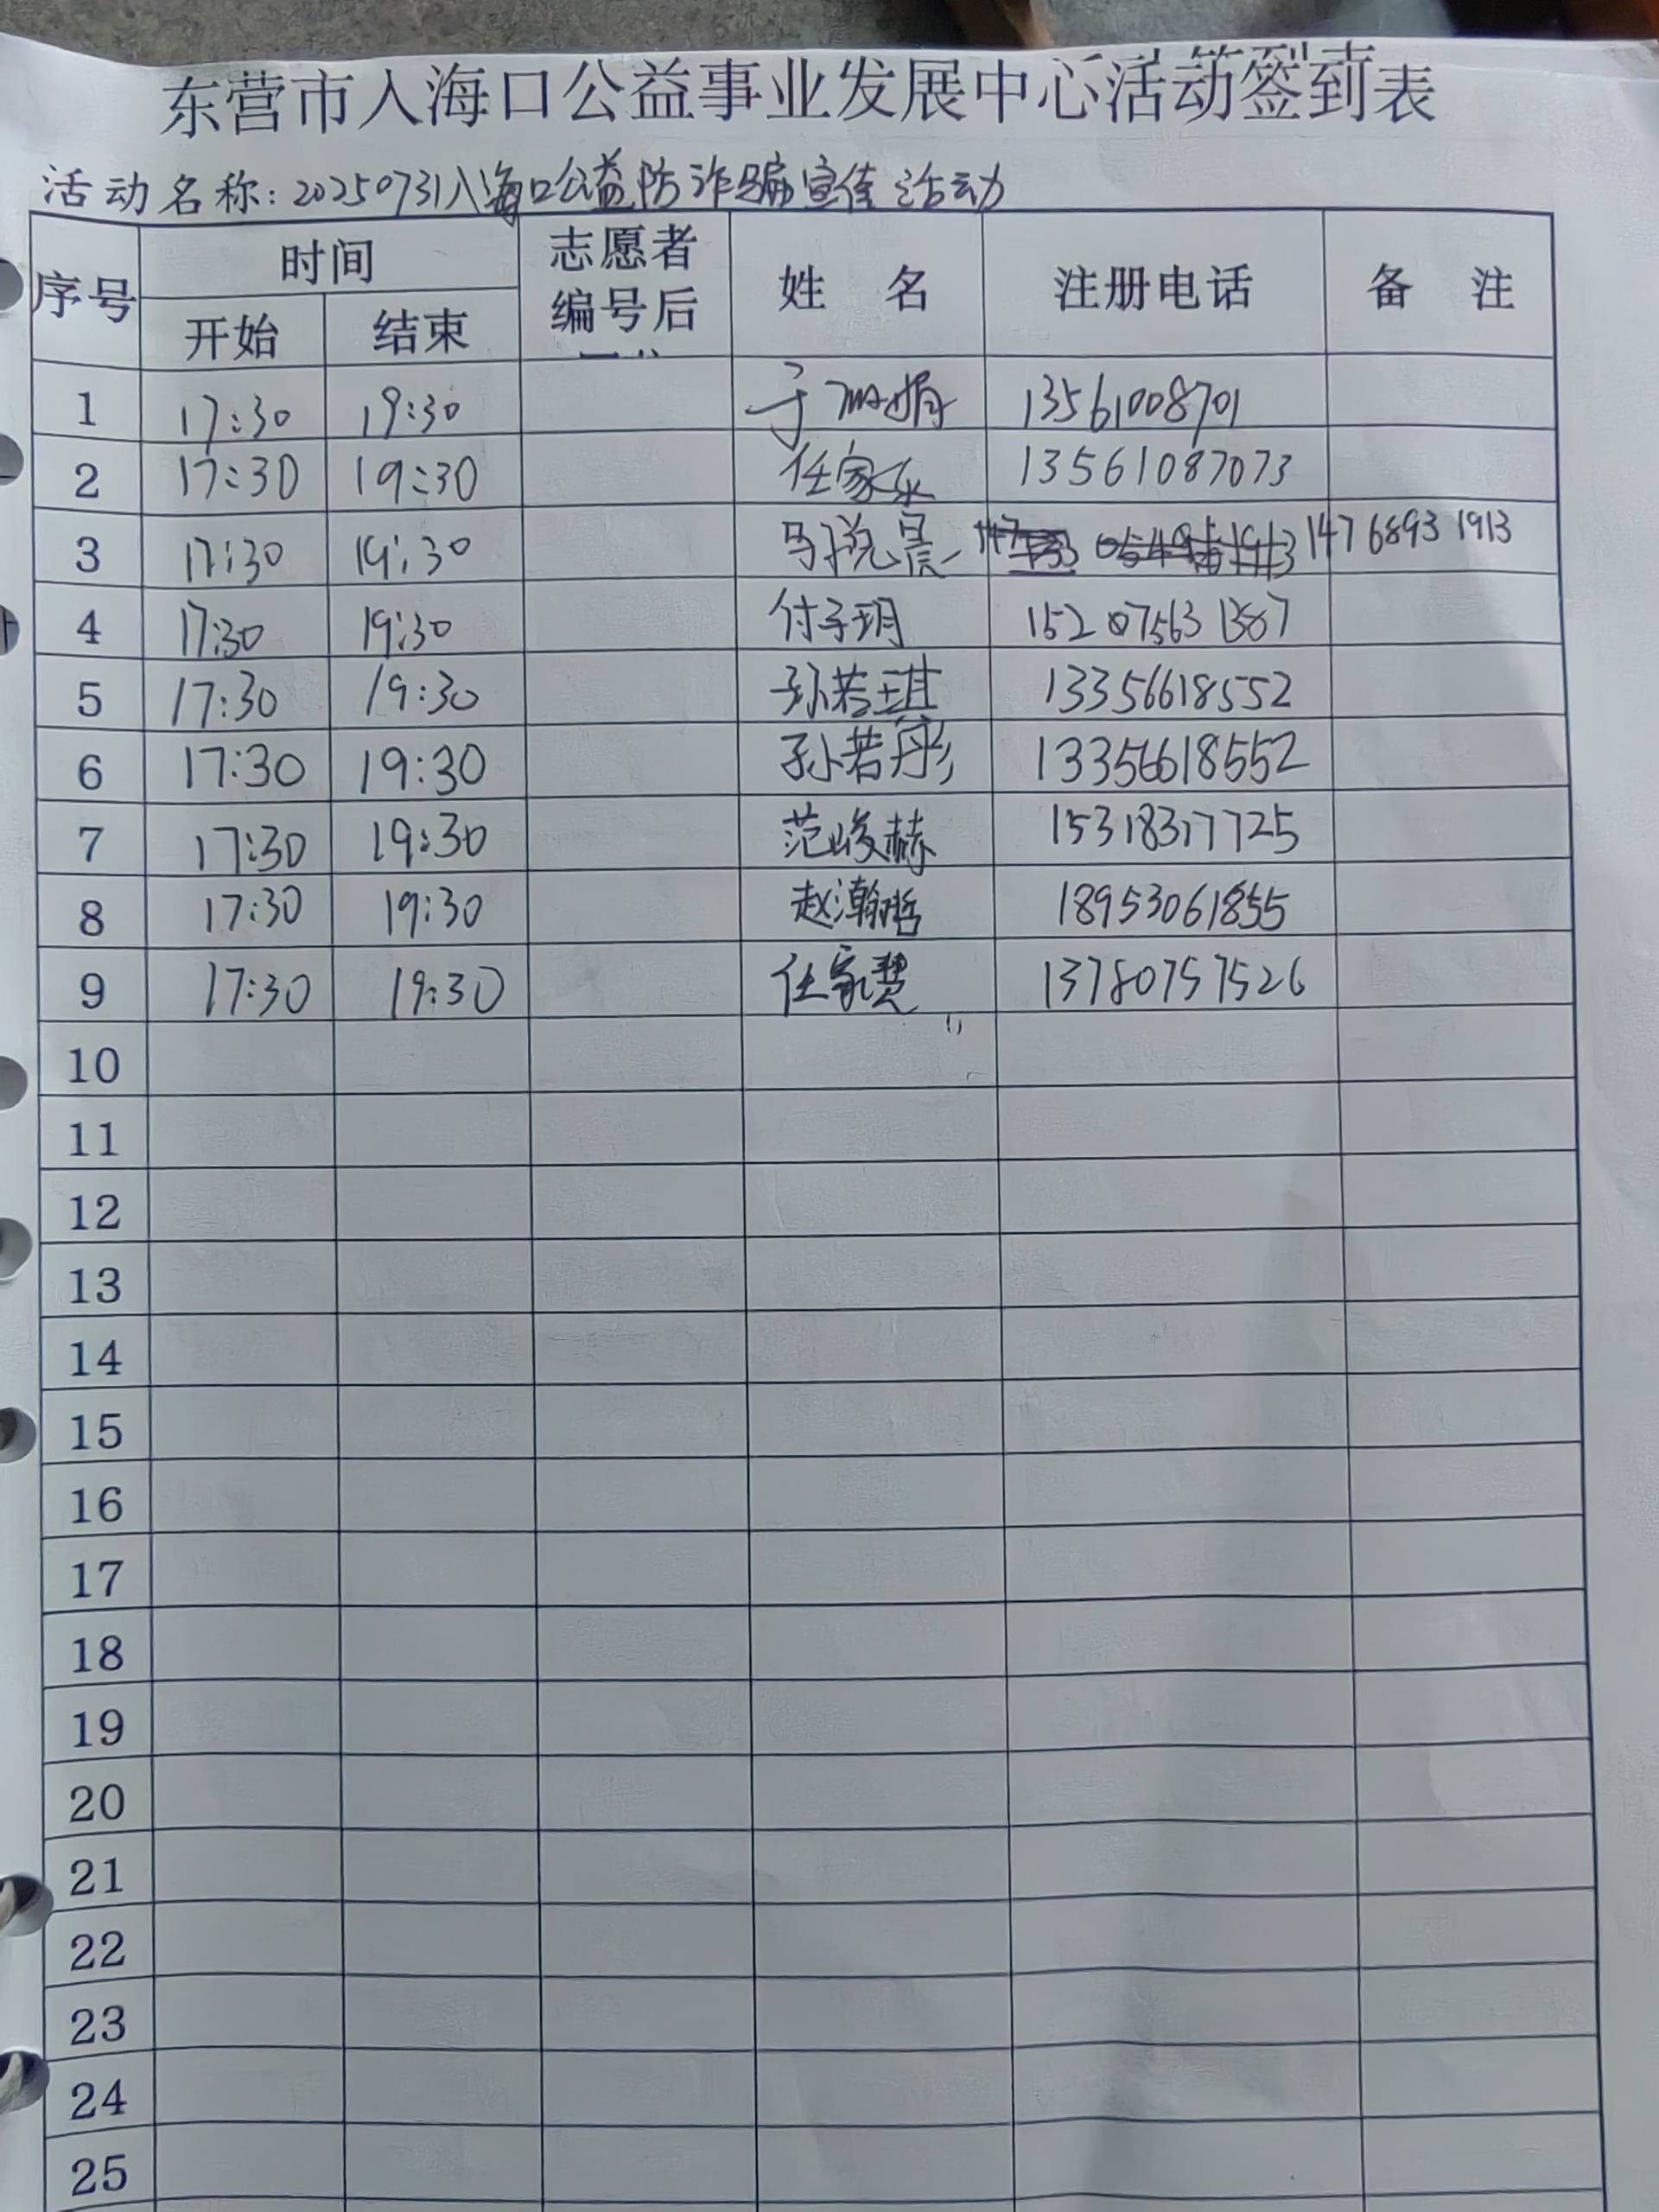 东营市入海口公益事业发展中心活动签到表
活动名称：20250731入海口公益防诈骗宣传活动
序号 时间 志愿者编号后 姓 名 注册电话 备 注
开始 结束
1 17:30 19:30 于 娟 13561008701
2 17:30 19:30 任家乐 13561087073
3 17:30 19:30 马 晨 14768931913
4 17:30 19:30 付子玥 152 07563 1387
5 17:30 19:30 孙若琪 13356618552
6 17:30 19:30 孙若彤 13356618552
7 17:30 19:30 范峻赫 15318317725
8 17:30 19:30 赵瀚哲 18953061855
9 17:30 19:30 任家慧 13780757526
10
11
12
13
14
15
16
17
18
19
20
21
22
23
24
25